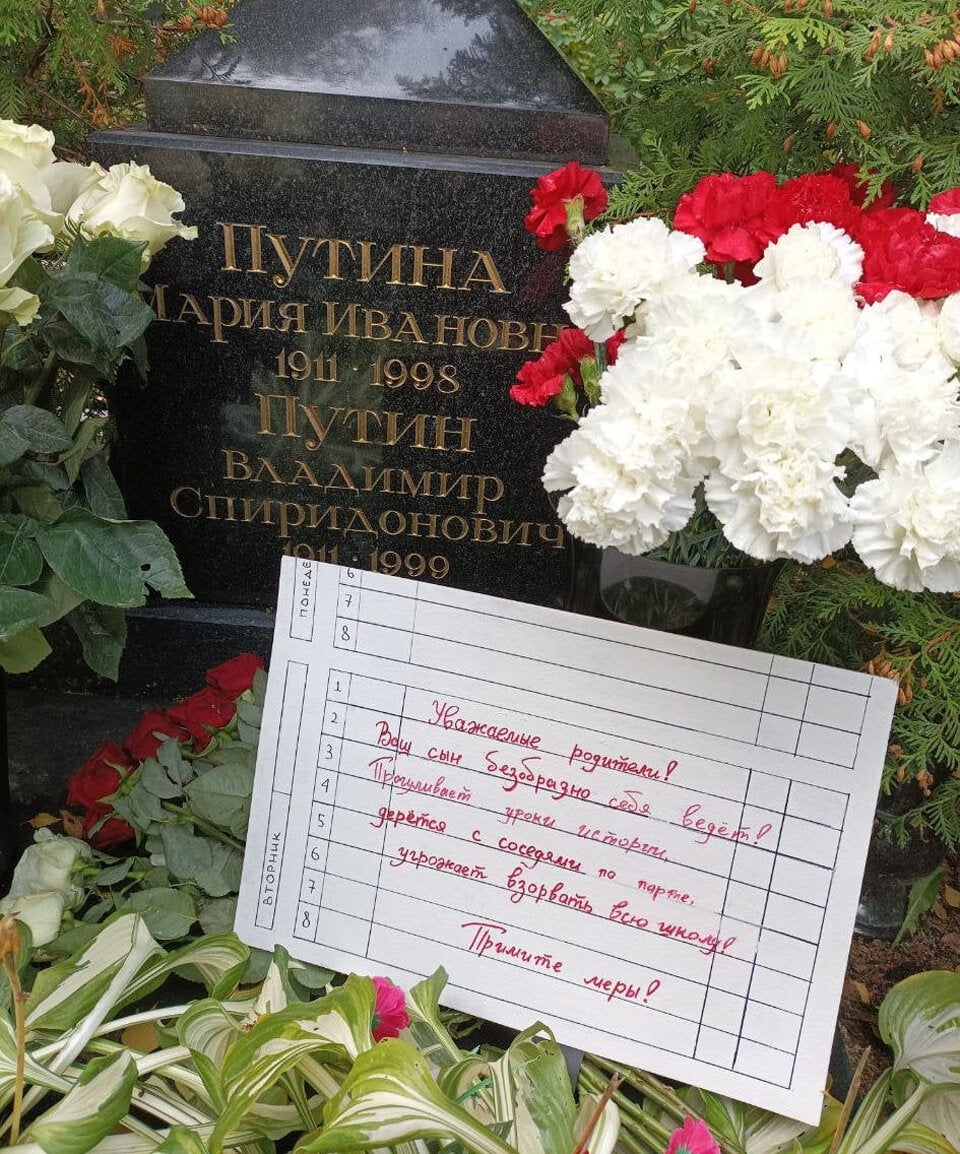 ПУТИНА
МАРИЯ ИВАНОВН
1911 · 1998
ПУТИН
ВЛАДИМИР
СПИРИДОНОВИЧ
1911 · 1999
ПОНЕДЕ
6
7
8
ВТОРНИК
1
2
3
4
5
6
7
8
Уважаемые родители!
Ваш сын безобразно себя ведёт!
Прогуливает уроки истории,
дерётся с соседями по парте,
угрожает взорвать всю школу!
Примите меры!